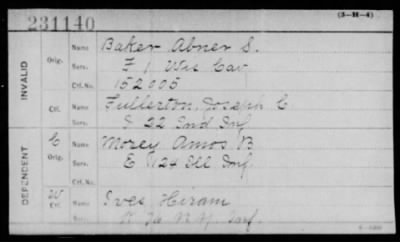 231140
(3-H-4)
INVALID
Orig.
Name Baker Abner S.
Serv. F 1 Wis Cav
Ctf. No. 152005
Ctf.
Name Fullerton, Joseph C
Serv. I 22 Ind Inf
DEPENDENT
C
Orig.
Name Morey Amos B
Serv. E 124 Ill Inf
Ctf. No.
W
Ctf.
Name Ives Hiram
Serv. N.Y. Inf.